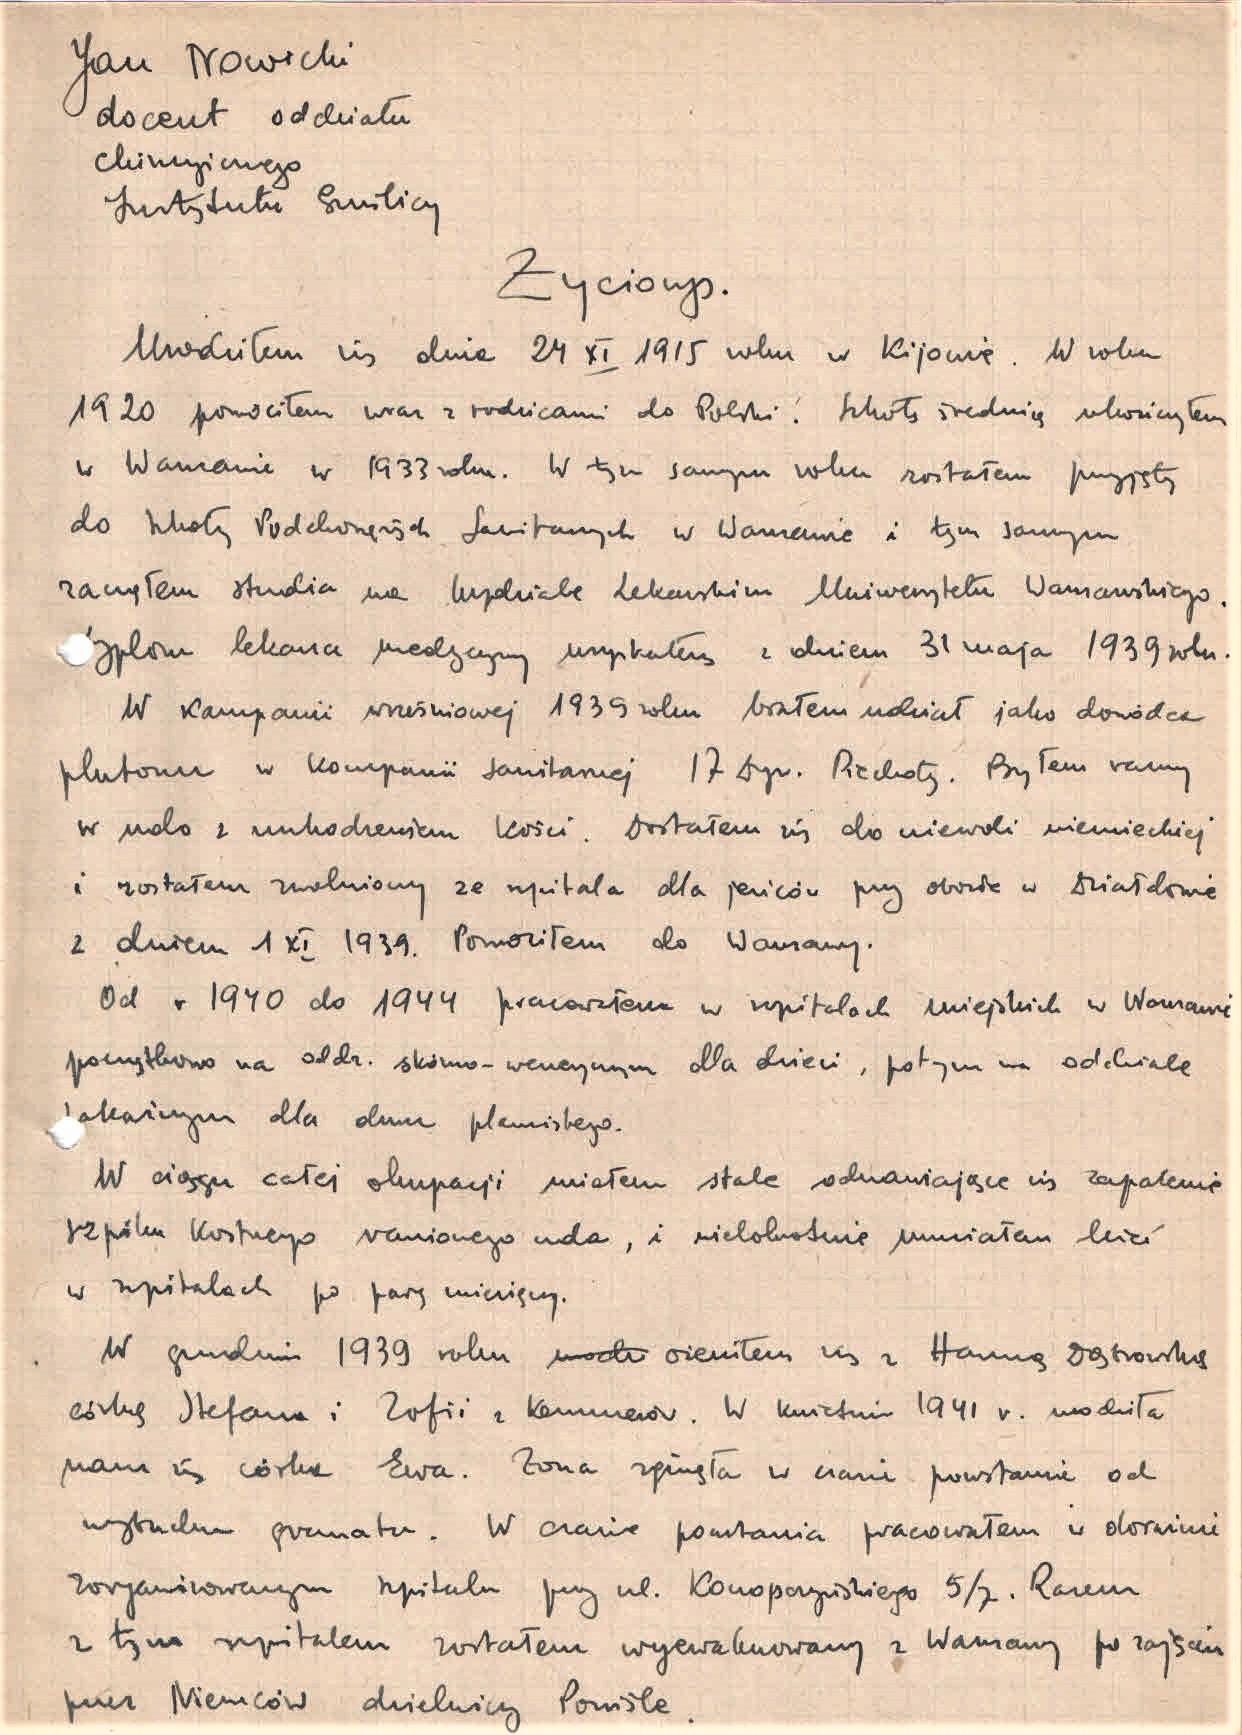 Jan Nowicki
docent oddziału
chirurgicznego
Instytutu Gruźlicy
Życiorys.
Urodziłem się dnia 24 XI 1915 roku w Kijowie. W roku
1920 powróciłem wraz z rodzicami do Polski. Szkołę średnią ukończyłem
w Warszawie w 1933 roku. W tym samym roku zostałem przyjęty
do Szkoły Podchorążych Sanitarnych w Warszawie i tym samym
zacząłem studia na Wydziale Lekarskim Uniwersytetu Warszawskiego.
Dyplom lekarza medycyny uzyskałem z dniem 31 maja 1939 roku.
W kampanii wrześniowej 1939 roku brałem udział jako dowódca
plutonu w kompanii sanitarnej 17 Dyw. Piechoty. Byłem ranny
w udo z uszkodzeniem kości. Dostałem się do niewoli niemieckiej
i zostałem zwolniony ze szpitala dla jeńców przy obozie w Działdowie
z dniem 1 XI 1939. Powróciłem do Warszawy.
Od r 1940 do 1944 pracowałem w szpitalach miejskich w Warszawie
początkowo na oddz. skórno-wenerycznym dla dzieci, potym na oddziale
zakaźnym dla duru plamistego.
W ciągu całej okupacji miałem stale odnawiające się zapalenie
szpiku kostnego ranionego uda, i wielokrotnie musiałem leżeć
w szpitalach po parę miesięcy.
W grudniu 1939 roku ożeniłem się z Hanną Dąbrowską
córką Stefana i Zofii z . W kwietniu 1941 r. urodziła
nam się córka Ewa. Żona zginęła w czasie powstania od
wybuchu granatu. W czasie powstania pracowałem w doraźnie
zorganizowanym szpitalu przy ul. Konopczyńskiego 5/7. Razem
z tym szpitalem zostałem wyewakuowany z Warszawy po zajęciu
przez Niemców dzielnicy Powiśle.